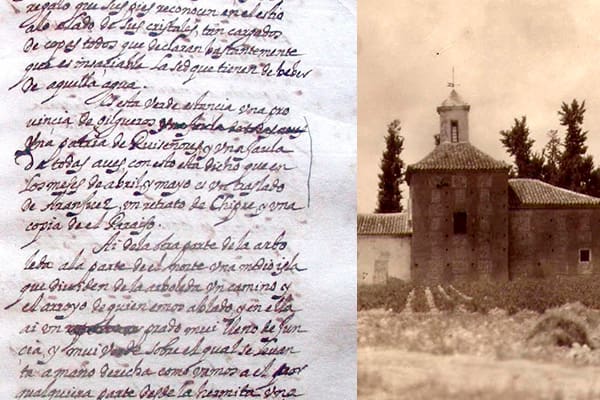 regalo que sus pies reconocen en el estio
a lo elado de sus cristales, tan cargados
de copes todos que declaran bastantemente
que es insaciable la sed que tienen de beber
de aquella agua.
Es esta verde estancia vna pro
uincia de gilgueros
vna patria de Ruiseñores, y vna jaula
de todas aues, con esto esta dicho que en
los meses de abril, y mayo es vn traslado
de Aranjuez, vn retrato de Chipre, y vna
copia de el Paraiso.
Ai de la otra parte de la arbo
leda a la parte de el norte vna media isla
que diuiden de la arboleda vn camino, y
el arroyo de quien emos ablado, y en ella
ai vn prado mui lleno de jun
cia, y mui verde sobre el qual se leuan
ta a mano derecha como vamos a el
qualquiera parte desde la hermita vna